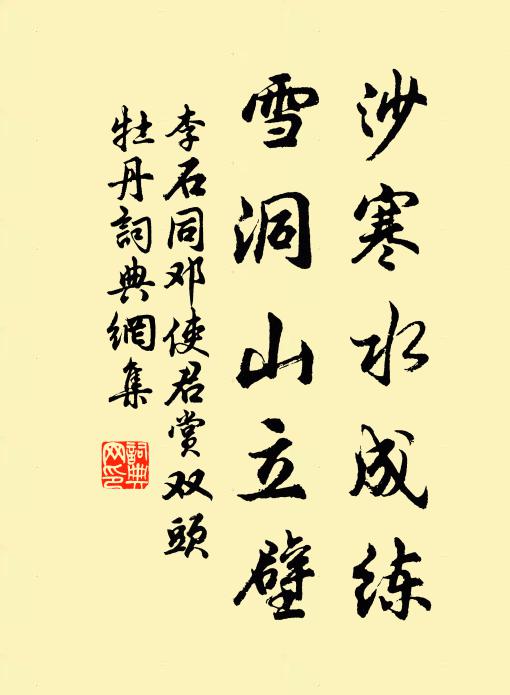 沙寒水成练
雪洞山立壁
李石同邓使君赏双头
牡丹詞典網集
詞典
网印